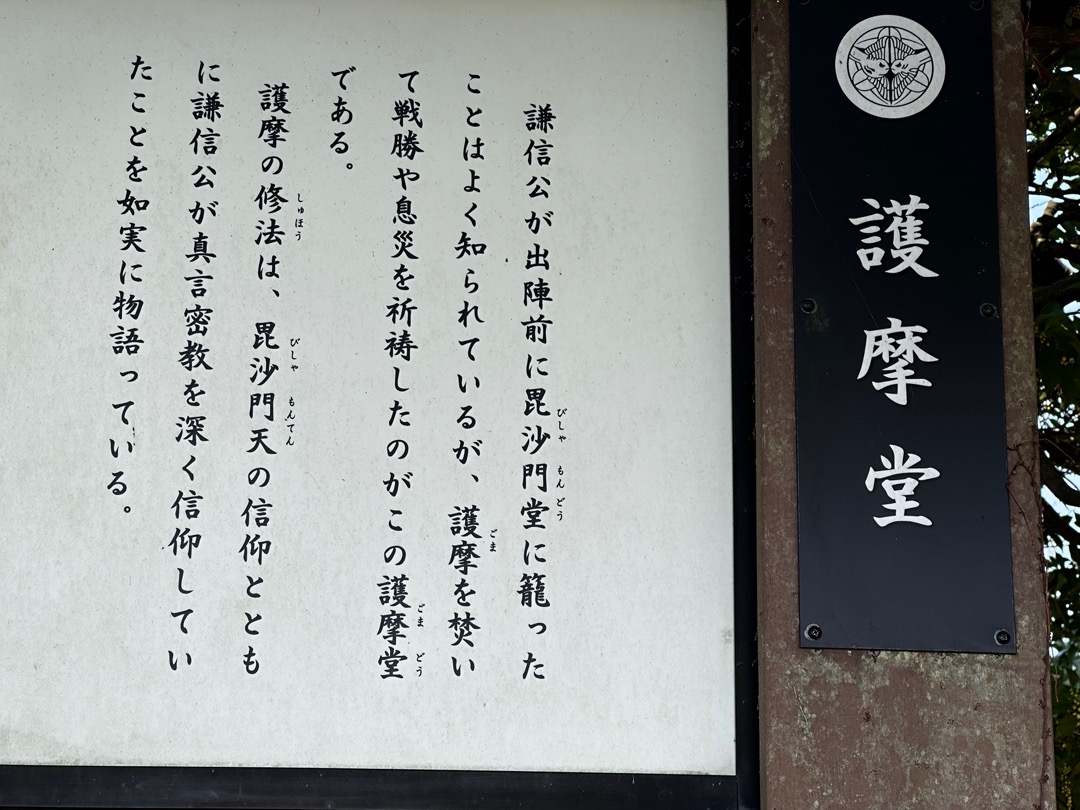 護摩堂
謙信公が出陣前に毘沙門堂に籠った
びしゃ もん どう
ことはよく知られているが、護摩を焚い
ごま
て戦勝や息災を祈祷したのがこの護摩堂
ごま どう
である。
護摩の修法は、毘沙門天の信仰ととも
しゅほう びしゃ もんてん
に謙信公が真言密教を深く信仰してい
たことを如実に物語っている。